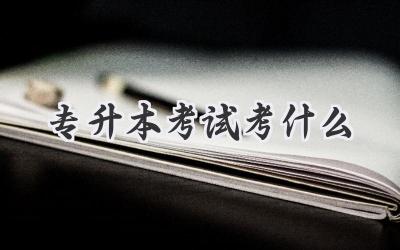 专升本考试考什么